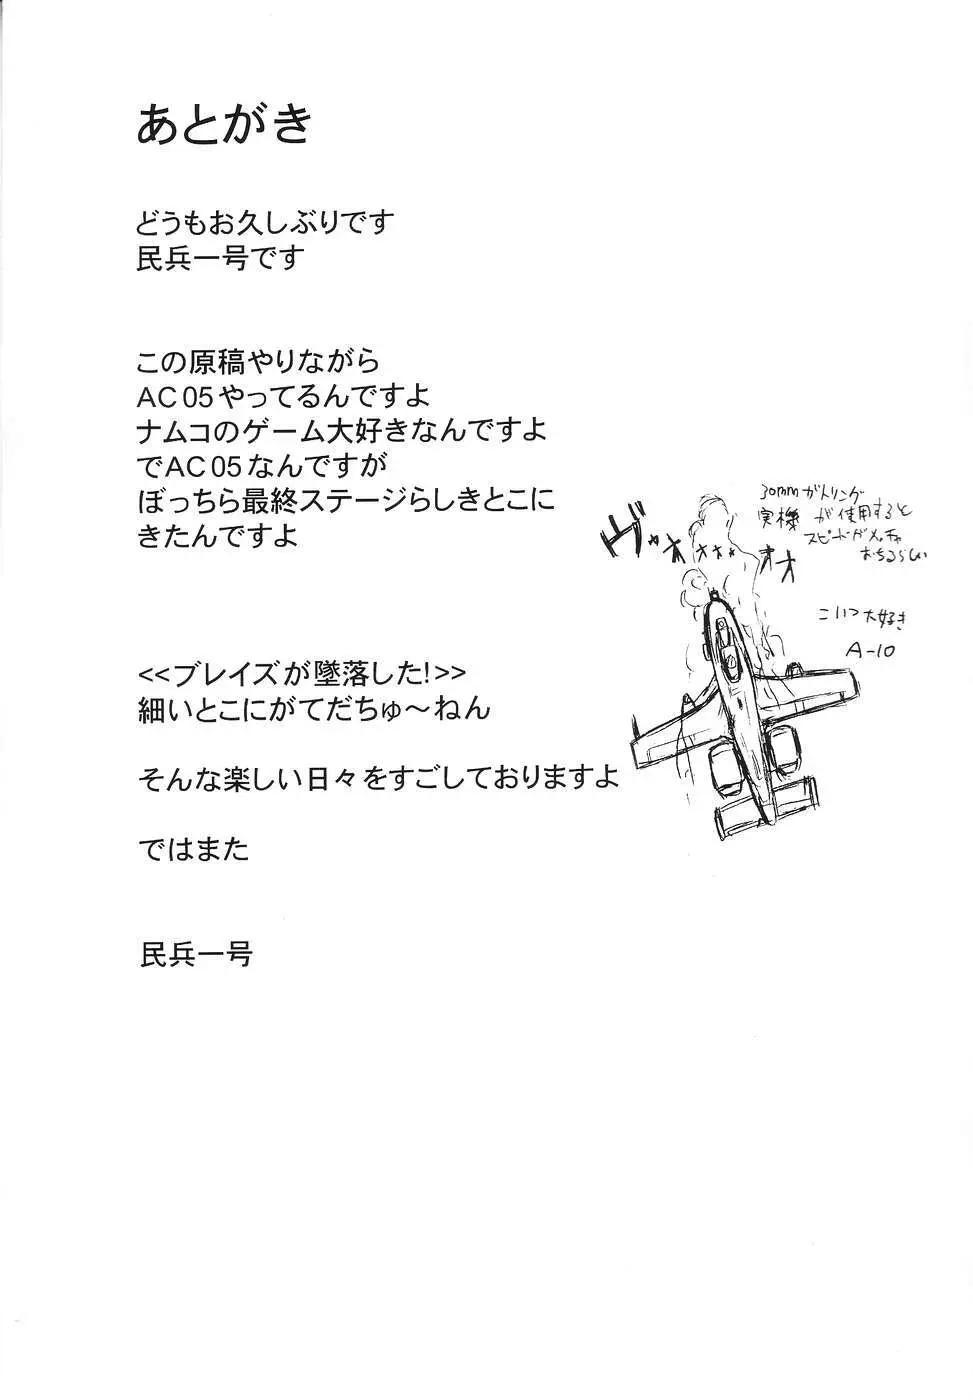 あとがき
どうもお久しぶりです
民兵一号です
この原稿やりながら
AC05やってるんですよ
ナムコのゲーム大好きなんですよ
でAC05なんですが
ぼっちら最終ステージらしきとこに
きたんですよ
<<ブレイズが墜落した!>>
細いとこにがてだちゅ～ねん
そんな楽しい日々をすごしておりますよ
ではまた
民兵一号
30mmガトリング
実機が使用すると
スピードがメッチャ
おちるらしい
ヴァオオオォオオ
こいつ大好き
A-10